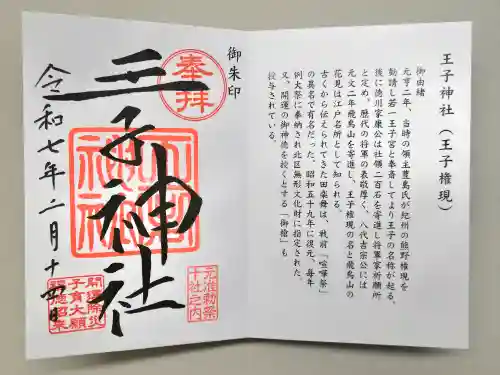 王子神社（王子権現）
御由緒
元亨二年、当時の領主豊島氏が紀州の熊野権現を
勧請し若一王子宮と奉斎してより王子の名称が起る。
後に徳川家康公は社領二百石を寄進し将軍家祈願所
と定め、歴代の将軍の表敬厚く、八代吉宗公には
元文二年飛鳥山を寄進し、王子権現の名と飛鳥山の
花見は江戸名所として知られる。
古くから伝えられてきた田楽舞は、戦前「喧嘩祭」
の異名で有名だった。昭和五十九年に復元、毎年
例大祭に奉納され北区無形文化財に指定された。
又、開運の御神徳を授くとする「御槍」も
授与されている。
御朱印
奉拝
王子神社
元准勅祭
十社之内
令和七年二月十四日